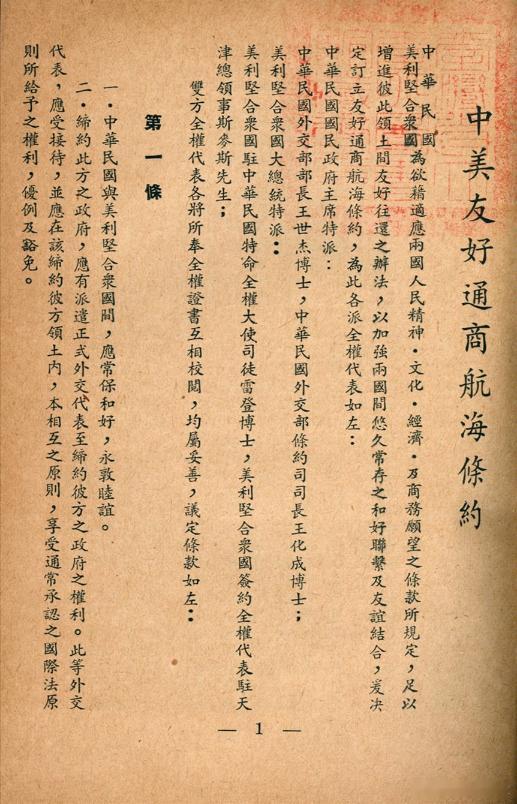 中美友好通商航海條約
中華民國
美利堅合衆國為欲藉適應兩國人民精神・文化・經濟・及商務願望之條款所規定，足以
增進彼此領土間友好往還之辦法，以加強兩國間悠久常存之和好聯繫及友誼結合，爰決
定訂立友好通商航海條約，為此各派全權代表如左：
中華民國國民政府主席特派：
中華民國外交部部長王世杰博士，中華民國外交部條約司司長王化成博士；
美利堅合衆國大總統特派：
美利堅合衆國駐中華民國特命全權大使司徒雷登博士，美利堅合衆國簽約全權代表駐天
津總領事斯麥斯先生；
雙方全權代表各將所奉全權證書互相校閱，均屬妥善，議定條款如左：
第一條
一・中華民國與美利堅合衆國間，應常保和好，永敦睦誼。
二・締約此方之政府，應有派遣正式外交代表至締約彼方之政府之權利。此等外交
代表，應受接待，並應在該締約彼方領土內，本相互之原則，享受通常承認之國際法原
則所給予之權利，優例及豁免。
— 1 —